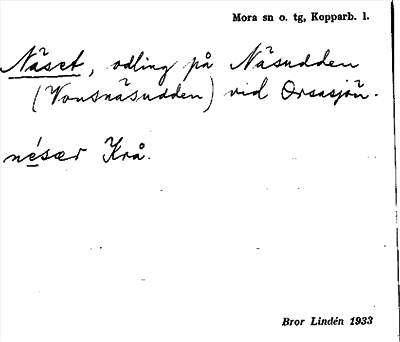 Mora sn o. tg, Kopparb. l.
Näset, odling på Näsudden
(Vonsnäsudden) vid Orsasjön.
nésær Krå.
Bror Lindén 1933